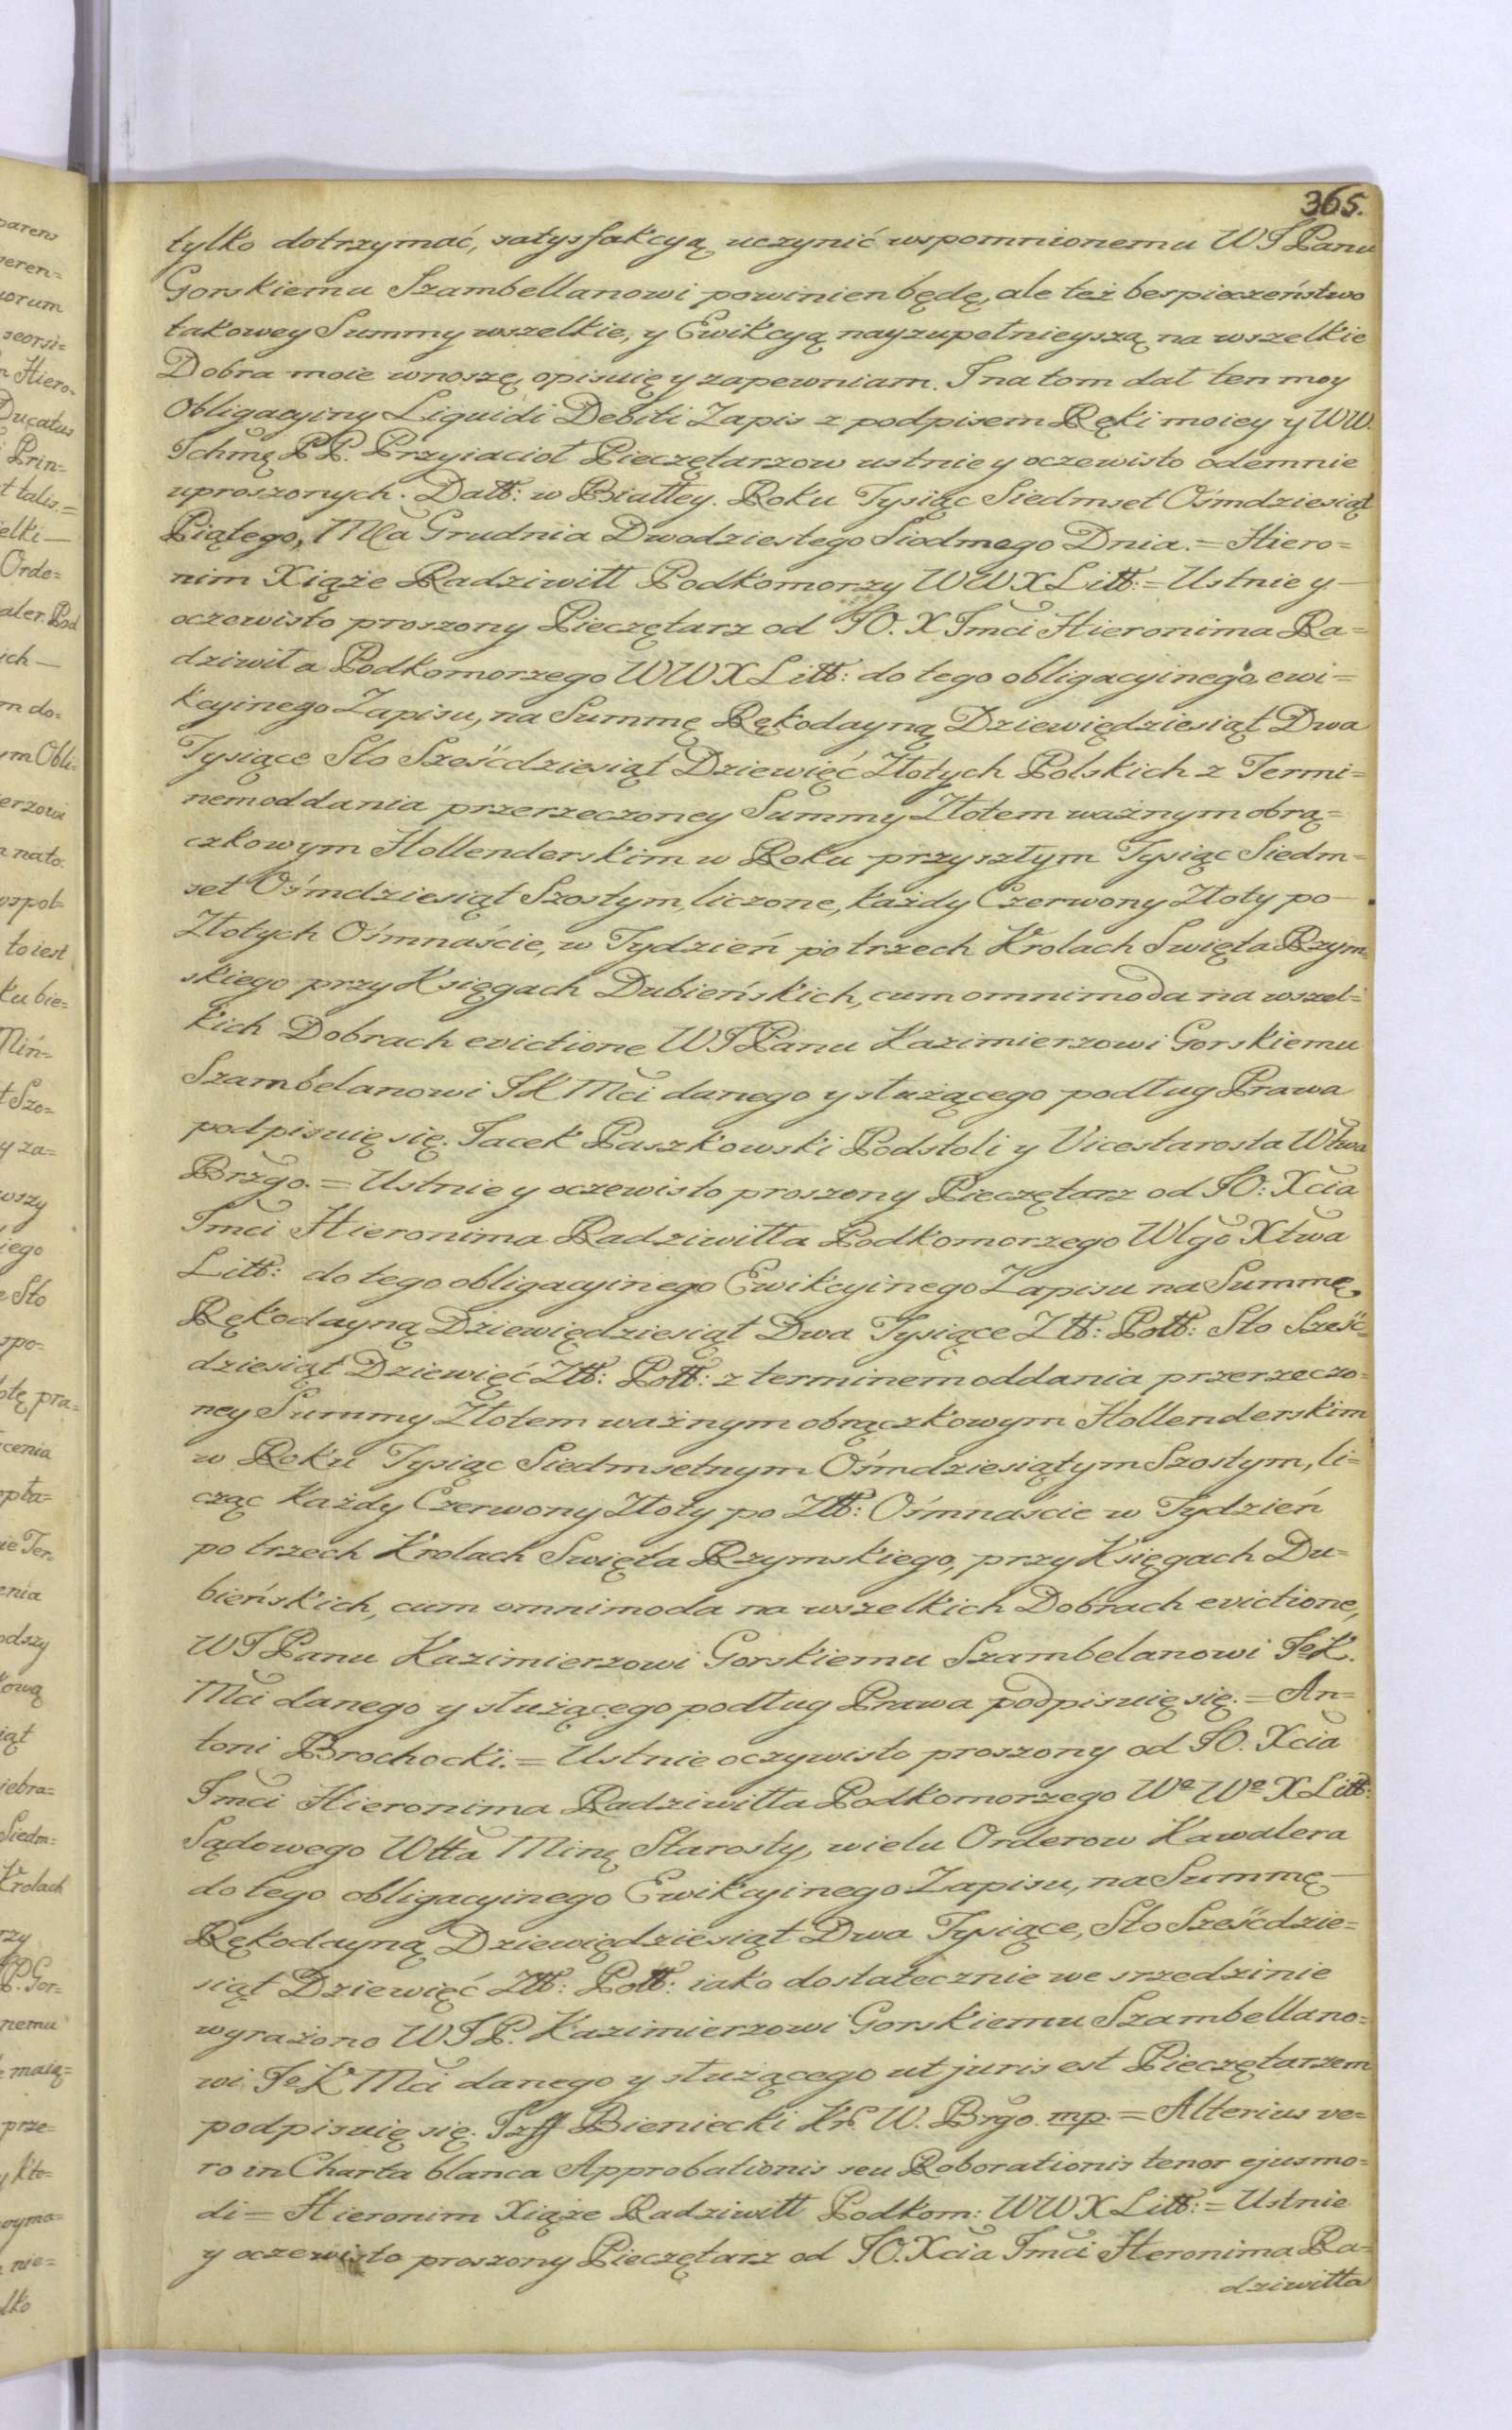 365.
tylko dotrzymać, satysfakcyą uczynić wspomnionemu WJPanu
Gorskiemu Szambellanowi powinien będę, ale też bespieczeństwo
takowey Summy wszelkie, y Ewikcyą nayzupełnieyszą na wszelkie
Dobra moie wnoszę, opisuię y zapewniam. J na tom dał ten moy
Obligacyiny Liquidi Debiti Zapis z podpisem Ręki moiey y WW.
Jchmę PP. Przyiacioł Pieczętarzow ustnie y oczewisto odemnie
uproszonych. Datt: w Białłey. Roku Tysiąc Siedmset Ośmdziesiąt
Piątego, Mca Grudnia Dwodziestego Siodmego Dnia. = Hiero=
nim Xiąże Radziwiłł Podkomorzy WWXLitt: = Ustnie y
oczowisto proszony Pieczętarz od JO. X Jmci Hieronima Ra=
dziwiła Podkomorzego WWXLitt: do tego obligacyinego, ewi=
kcyinego Zapisu, na Summę Rękodayną Dziewiędziesiąt Dwa
Tysiące Sto Sześćdziesiąt Dziewięć Złotych Polskich z Termi=
nem oddania przerzeczoney Summy Złotem ważnym obrą=
czkowym Hollenderskim w Roku przyszłym Tysiąc Siedm=
set Ośmdziesiąt Szostym, liczone, każdy Czerwony Złoty po
Złotych Ośmnaście, w Tydzień po trzech Krolach Swięta Rzym=
skiego przy Księgach Dubieńskich, cum omnimoda na wszel=
kich Dobrach evictione WJPanu Kazimierzowi Gorskiemu
Szambelanowi JK Mci danego y służącego podług Prawa
podpisuię się. Jacek Paszkowski Podstoli y Vicestarosta Wtwa
Brzgo. = Ustnie y oczewisto proszony Pieczętarz od JO: Xcia
Jmci Hieronima Radziwiłła Podkomorzego Wlgo Xtwa
Litt: do tego obligacyinego Ewikcyinego Zapisu na Summę
Rękodayną Dziewiędziesiąt Dwa Tysiące Ztt: Poltt: Sto Sześć=
dziesiąt Dziewięć Ztt: Poltt: z terminem oddania przerzeczo=
ney Summy Złotem ważnym obrączkowym Hollenderskim
w Roku Tysiąc Siedmsetnym Ośmdziesiątym Szostym, li=
cząc każdy Czerwony Złoty po Ztt: Ośmnaście w Tydzień
po trzech Krolach Swięta Rzymskiego, przy Księgach Du=
bieńskich, cum omnimoda na wszelkich Dobrach evictione,
WJPanu Kazimierzowi Gorskiemu Szambelanowi JeK.
Mci danego y służącego podług Prawa podpisuię się. = An=
toni Brochocki. = Ustnie oczywisto proszony od JO. Xcia
Jmci Hieronima Radziwiłła Podkomorzego Wo Wo X Litt:
Sądowego Wttа Minę Starosty, wielu Orderow Kawalera
do tego obligacyinego Ewikcyinego Zapisu, na Summę
Rękodayną Dziewiędziesiąt Dwa Tysiące, Sto Sześćdzie=
siąt Dziewięć Ztt: Poltt: iako dostatecznie we srzedzinie
wyrażono WJP. Kazimierzowi Gorskiemu Szambellano=
wi JeK Mci danego y służącego ut juris est Pieczętarzem
podpisuię się. Bieniecki W. Brgo. mp. = Alterius ve=
ro in Charta blanca Approbationis seu Roborationis tenor ejusmo=
di = Hieronim Xiąże Radziwiłł Podkom: WWXLitt: = Ustnie
y oczewisto proszony Pieczętarz od JO. Xcia Jmci Heronima Ra=
dziwiłła